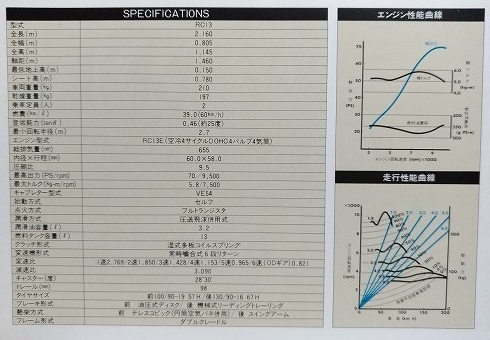 SPECIFICATIONS
型式 RC13
全長(m) 2.160
全幅(m) 0.805
全高(m) 1.145
軸距(m) 1.460
最低地上高(m) 0.150
シート高(m) 0.780
車両重量(kg) 210
乾燥重量(kg) 197
乗車定員(人) 2
燃費(ℓ) 39.0(60km/h)
登坂能力(tanθ) 0.46(約25度)
最小回転半径(m) 2.7
エンジン型式 RC13E(空冷4サイクルDOHC4バルブ4気筒)
総排気量(㎤) 655
内径×行程(㎜) 60.0×58.0
圧縮比 9.5
最高出力(PS/rpm) 70/9,500
最大トルク(kg-m/rpm) 5.8/7,500
キャブレター型式 VE54
始動方式 セルフ
点火方式 フルトランジスタ
潤滑方式 圧送飛沫併用式
潤滑油容量(ℓ) 3.2
燃料タンク容量(ℓ) 13
クラッチ形式 湿式多板コイルスプリング
変速機形式 常時噛合式6段リターン
変速比 1速2.769/2速1.850/3速1.428/4速1.153/5速0.965/6速(ODギア)0.821
減速比 3.090
キャスター(度) 28°30′
トレール(㎜) 98
タイヤサイズ 前100/90-19 57H/後130/90-16 67H
ブレーキ形式 前 油圧式ディスク/後 機械式リーディングトレーリング
懸架方式 前 テレスコピック(円筒空気バネ併用)/後 スイングアーム
フレーム形式 ダブルクレードル
エンジン性能曲線
70
60
50
40
30
20
(PS)
6.0
5.0
4.0
(kg-m)
エンジン回転速度(rpm)×1000
走行性能曲線
×1000
10
8
6
4
2
50
100
150
200
速度(km/h)